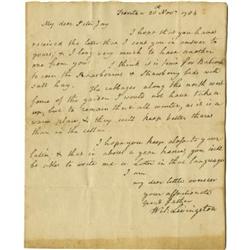 Trenton 20th Nov.r 1784
My dear Peter Jay,
I hope that you have
received the letter that I sent you in answer
to yours, & I long very much to have another
one from you. I think it is time for
to cover the Strawberry beds with
salt hay. The cabbages along the north west
fence of the garden I would not have taken
up, but I remain there all winter, as it is a
warm place, & they will keep better there
than in the cellar.
I hope you keep close to your
Latin, & that in about a year hence, you will
be able to write me a letter in that language
I am
my dear little
your affectionate
Grand Father
Wil. Livingston